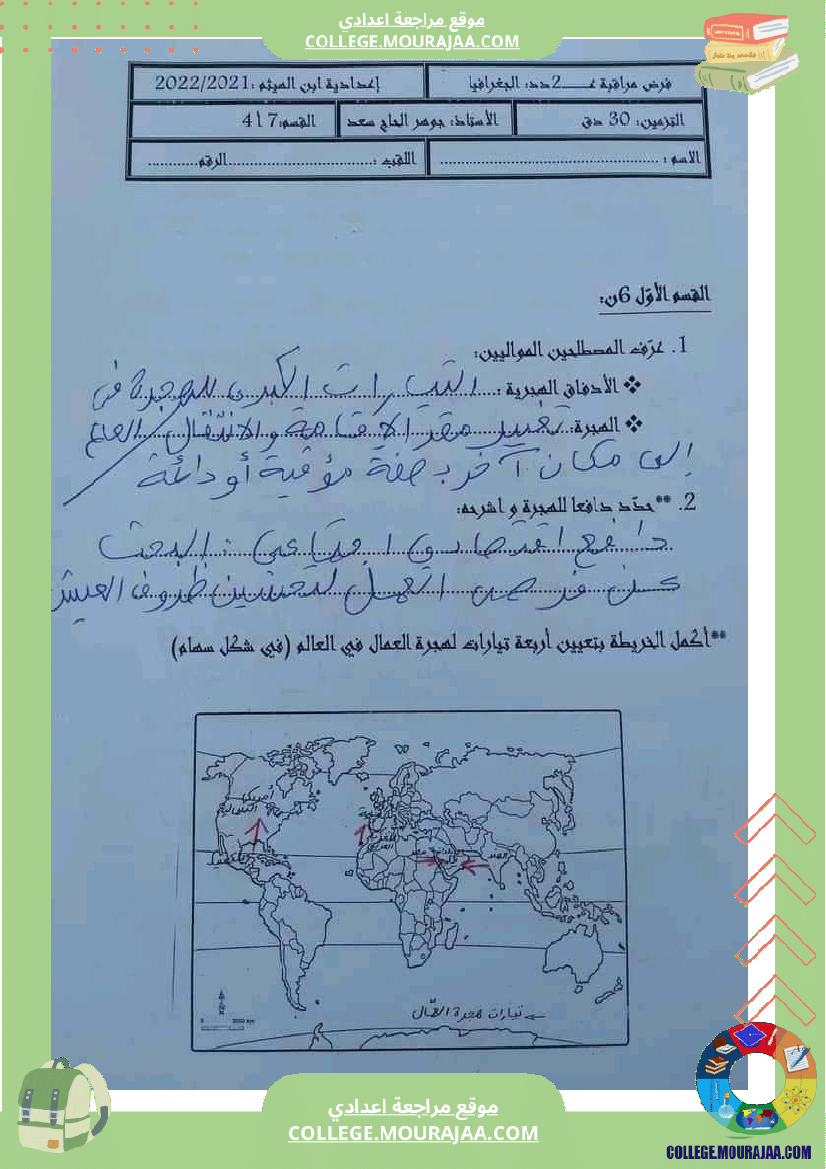 موقع مراجعة اعدادي
COLLEGE.MOURAJAA.COM
فرض مراقبة عــــ2ـدد: الجغرافيا
إعدادية ابن الهيثم :2022/2021
التزمين: 30 دق
الأستاذ: جوهر الحاج سعد
القسم:7 أ 4
الاسم : ................................................
اللقب :................................الرقم............
القسم الأوّل 6ن:
1. عرّف المصطلحين المواليين:
❖ الأدفاق الهجرية : التيارات الكبرى للهجرة في
العالم
❖ الهجرة: تغيير مقر الإقامة والانتقال
إلى مكان آخر بصفة مؤقتة أو دائمة
2. **حدّد دافعا للهجرة و اشرحه:
دافع اقتصادي اجتماعي : البحث
عن فرص العمل لتحسين ظروف العيش
**أكمل الخريطة بتعيين أربعة تيارات لهجرة العمال في العالم (في شكل سهام)
أمريكا
الشمالية
المكسيك
المغرب
العربي
مصر
الهند
تيارات هجرة العمّال
N
0
موقع مراجعة اعدادي
COLLEGE.MOURAJAA.COM
COLLEGE.MOURAJAA.COM